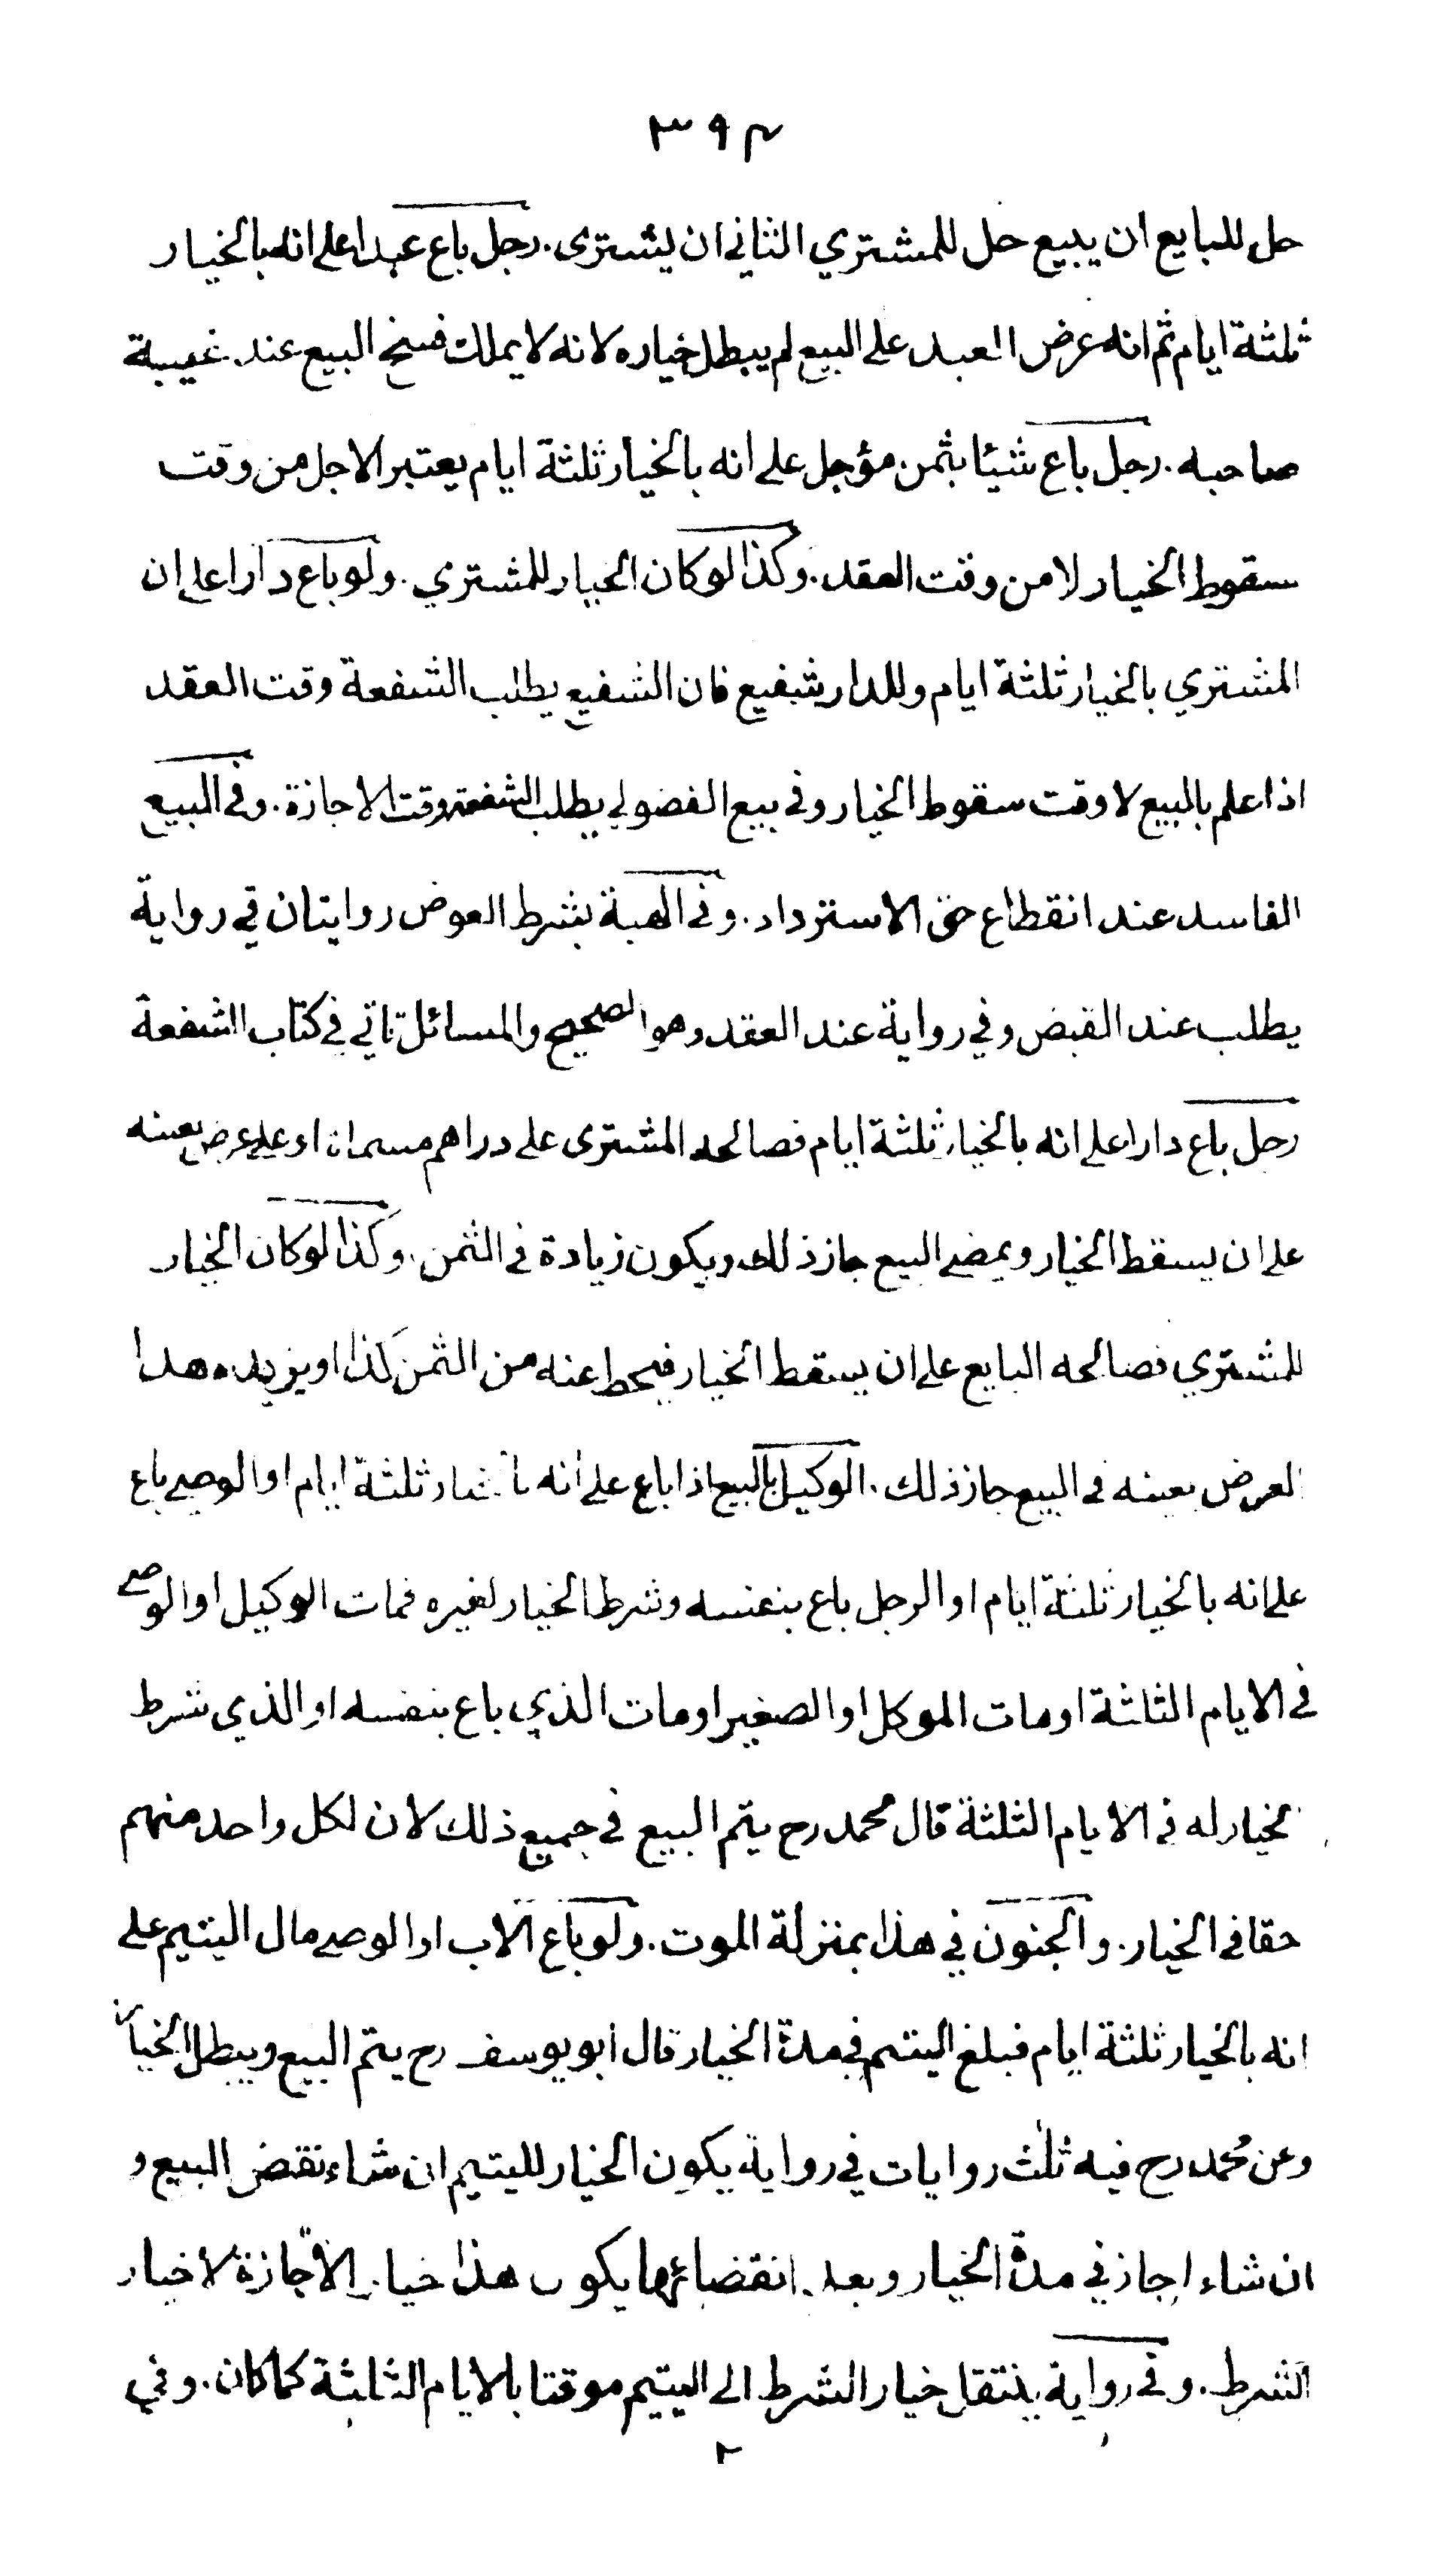 ٣٩٤
حل للبايع ان يبيع حل للمشتري الثاني ان يشترى . رجل باع عبدا على انه بالخيار
ثلثة ايام ثم انه عرض العبد على البيع لم يبطل خياره لانه لا يملك فسخ البيع عند غيبة
صاحبه . رجل باع شيئا بثمن مؤجل على انه بالخيار ثلثة ايام يعتبر الاجل من وقت
سقوط الخيار لا من وقت العقد . وكذا لو كان الخيار للمشتري . ولو باع دارا على ان
المشتري بالخيار ثلثة ايام وللدار شفيع فان الشفيع يطلب الشفعة وقت العقد
اذا علم بالبيع لا وقت سقوط الخيار وفي بيع الفضولي يطلب الشفعة وقت الاجازة . وفي البيع
الفاسد عند انقطاع حق الاسترداد . وفي الهبة بشرط العوض روايتان في رواية
يطلب عند القبض وفي رواية عند العقد وهو الصحيح والمسائل تاتي في كتاب الشفعة
رجل باع دارا على انه بالخيار ثلثة ايام فصالحه المشترى على دراهم مسماة او على عرض بعينه
على ان يسقط الخيار ويمضي البيع جاز ذلك ويكون زيادة في الثمن . وكذا لو كان الخيار
للمشتري فصالحه البايع على ان يسقط الخيار فيحط عنه من الثمن كذا او يزيده هذا
العرض بعينه في البيع جاز ذلك . الوكيل بالبيع اذا باع على انه بالخيار ثلثة ايام او الوصي باع
على انه بالخيار ثلثة ايام او الرجل باع بنفسه وشرط الخيار لغيره فمات الوكيل او الوصي
في الايام الثلثة او مات الموكل او الصغير او مات الذي باع بنفسه او الذي شرط
الخيار له في الايام الثلثة قال محمد رح يتم البيع في جميع ذلك لان لكل واحد منهم
حقا في الخيار . والجنون في هذا بمنزلة الموت . ولو باع الاب او الوصي مال اليتيم على
انه بالخيار ثلثة ايام فبلغ اليتيم في مدة الخيار قال ابو يوسف رح يتم البيع ويبطل الخيار
وعن محمد رح فيه ثلث روايات في رواية يكون الخيار لليتيم ان شاء نقض البيع و
ان شاء اجاز في مدة الخيار وبعد انقضائها يكون هذا خيار الاجازة لا خيار
الشرط . وفي رواية ينتقل خيار الشرط الى اليتيم موقتا بالايام الثلثة كما كان . وفي
٢